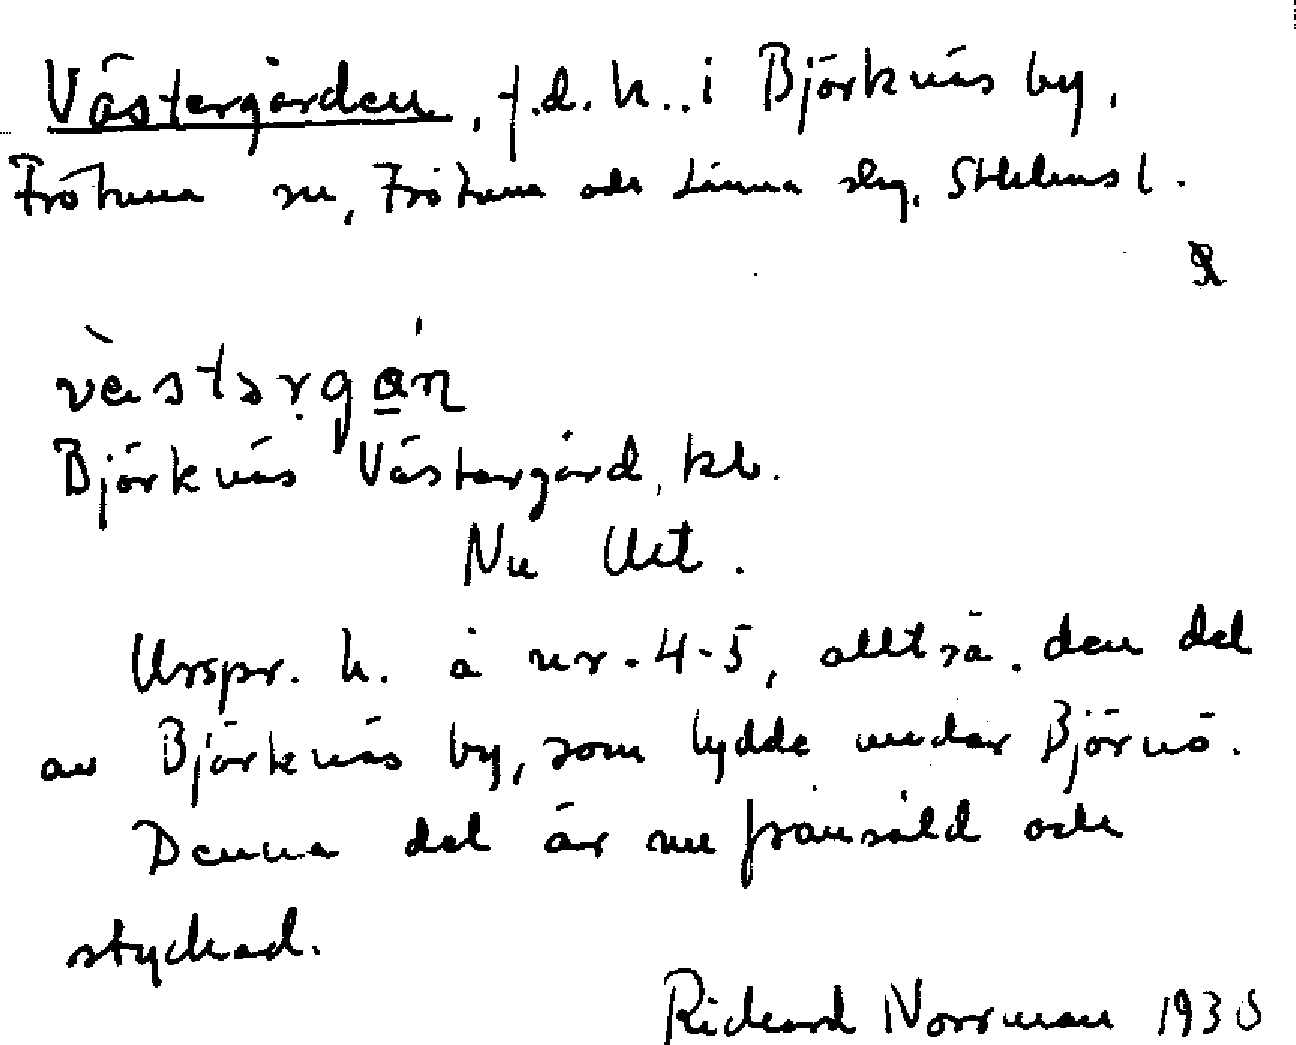 Västergården, f.d. h. i Björknäs by,
Frötuna sn, Frötuna och Länna skg, Sthlms l.
Björknäs Västergård, kb.
Nu
Urspr. h. å nr. 4-5, alltså den del
av Björknäs by, som lydde under Björnö.
Denna del är nu frånsåld och
styckad.
Rickard Norrman